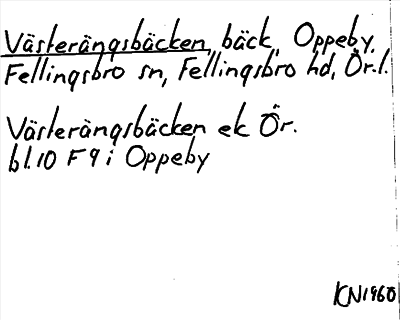 Västerängsbäcken, bäck, Oppeby,
Fellingsbro sn, Fellingsbro hd, Ör.l.
Västerängsbäcken ek Ör.
bl.10 F 9 i Oppeby
KN1960